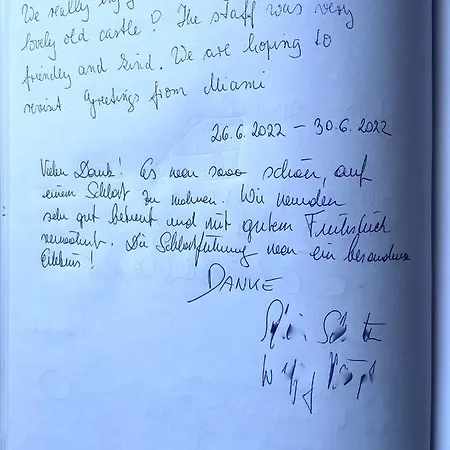 We really enj
lovely old castle! The staff was very
friendly and kind. We are hoping to
revisit. Greetings from Miami
26.6.2022 – 30.6.2022
Vielen Dank! Es war sooo schön, auf
einem Schloß zu wohnen. Wir wurden
sehr gut betreut und mit gutem Frühstück
verwöhnt. Die Schlossführung war ein besonderes
Erlebnis!
DANKE